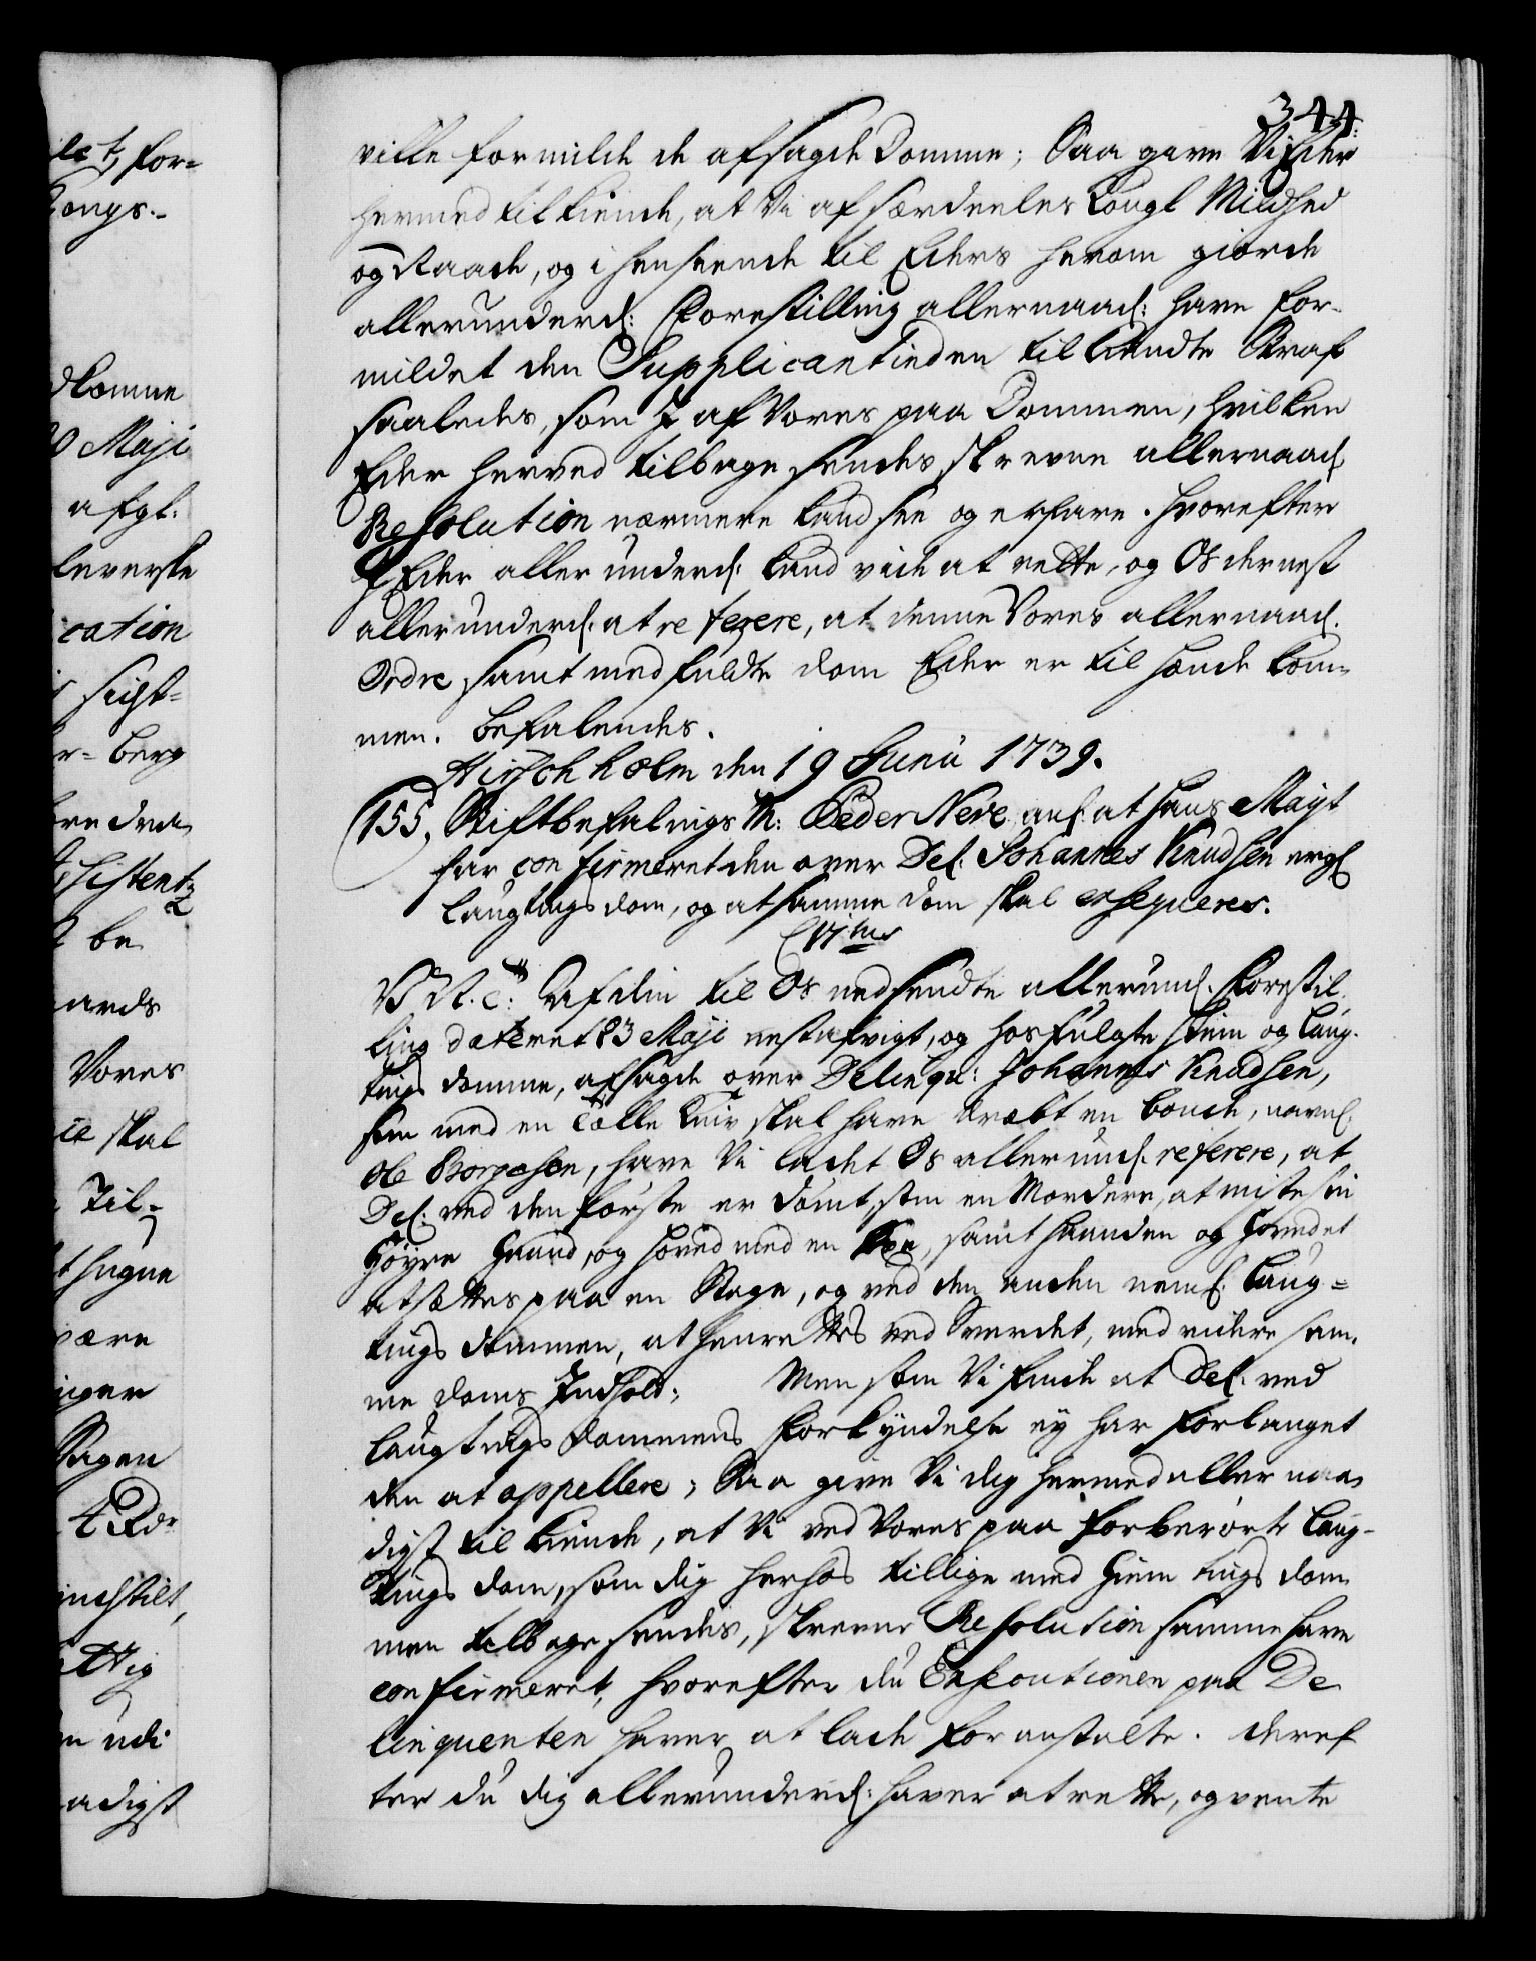 344.
ville formilde de afsagde Domme; Saa give Vi Eder
hermed tilkiende, at Vi af særdeeles Kongl Mildhed
og Naade, og i henseende til Eders herom giorde
allerunderd: Forestilling allernaad: have for-
mildet den Supplicantinden tilkiendte Straf
saaledes, som I af Vores paa Dommen, hvilken
Eder herved tilbage sendes, skrevne allernaad.
Resolution nærmere kand see og erfare. Hvorefter
I Eder allerunderd: kand vide at rette, og Os dernest
allerunderd. at referere, at denne Vores allernaad.
Ordre samt medfuldte dom Eder er til hænde kom-
men. Befalendes.
Hirschholm den 19 Junii 1739.
155, Stiftbefalings M: Peder Neve anl. at Hans Mayt
har confirmeret den over Del. Johannes Knudsen ergl
Laugtings dom, og at samme dom skal exseqveres.
C VI tus
V. N. C: Af din til Os nedsendte allerund. Forestil-
ling dateret 23 Maji nestafvigt, og hosfulgte Hiem og Laug-
tings domme, afsagde over Delinqv: Johannes Knudsen,
som med en Tolle Kniv skal have dræbt en bonde, navnl.
Ole Borgesen, have Vi ladet Os allerund. referere, at
Del: ved den første er dømt, som en Mordere, at miste sin
høyre Haand, og hoved med en Øxe, samt Haanden og Hovedet
at sættes paa en Stage, og ved den anden nemL. Laug-
tings dommen, at henrettes ved Sverdet, med videre sam-
me doms Indhold; Men som Vi finde at Del. ved
Laugtings Dommens Forkyndelse ey har forlanget
den at appellere; Saa give Vi dig hermed allernaa-
digst tilkiende, at Vi ved Vores paa forberørte Laug-
tings dom, som dig herhos tillige med Hiemtings dom-
men tilbage sendes, skrevne Resolution samme have
confirmeret, hvorefter du Exsecutionen paa De-
linqventen haver at lade foranstalte. deref-
ter du dig allerunderd: haver at rette, og vente